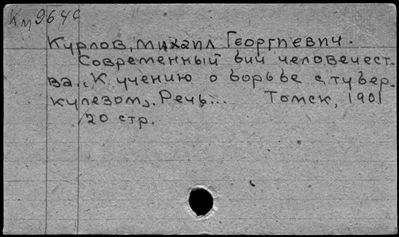 Км 964с
Курлов, Михаил Георгиевич.
Современный бич человечест.
ва. „К учению о борьбе с тубер.
кулезом„ Речь... Томск, 1901
20 стр.